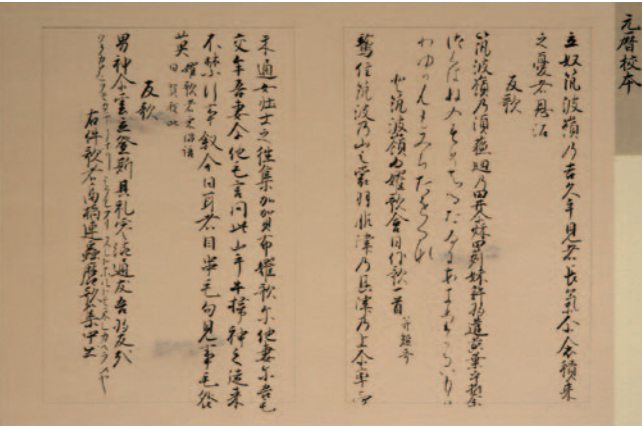 元暦校本
立奴筑波嶺乃吉久乎見者長氣尓念積来
之憂者息沼
反歌
筑波嶺乃須蘇廻乃田井尓秋田苅妹許将遣黄葉手折奈
つくはねのすそ
もみちたをら
登筑波嶺為嬥歌會日作歌一首 并短歌
鷲住筑波乃山之裳羽服津乃其津乃上尓率而
未通女壮士之徃集加賀布嬥歌尓他妻尓吾毛
交牟吾妻尓他毛言問此山乎牛掃神之従来
不禁行事叙今日耳者目串毛勿見事毛咎
莫 嬥歌者東俗語曰賀我比
反歌
男神尓雲立登斯具礼零沾通友吾将反哉
右件歌者高橋連蟲麿歌集中出